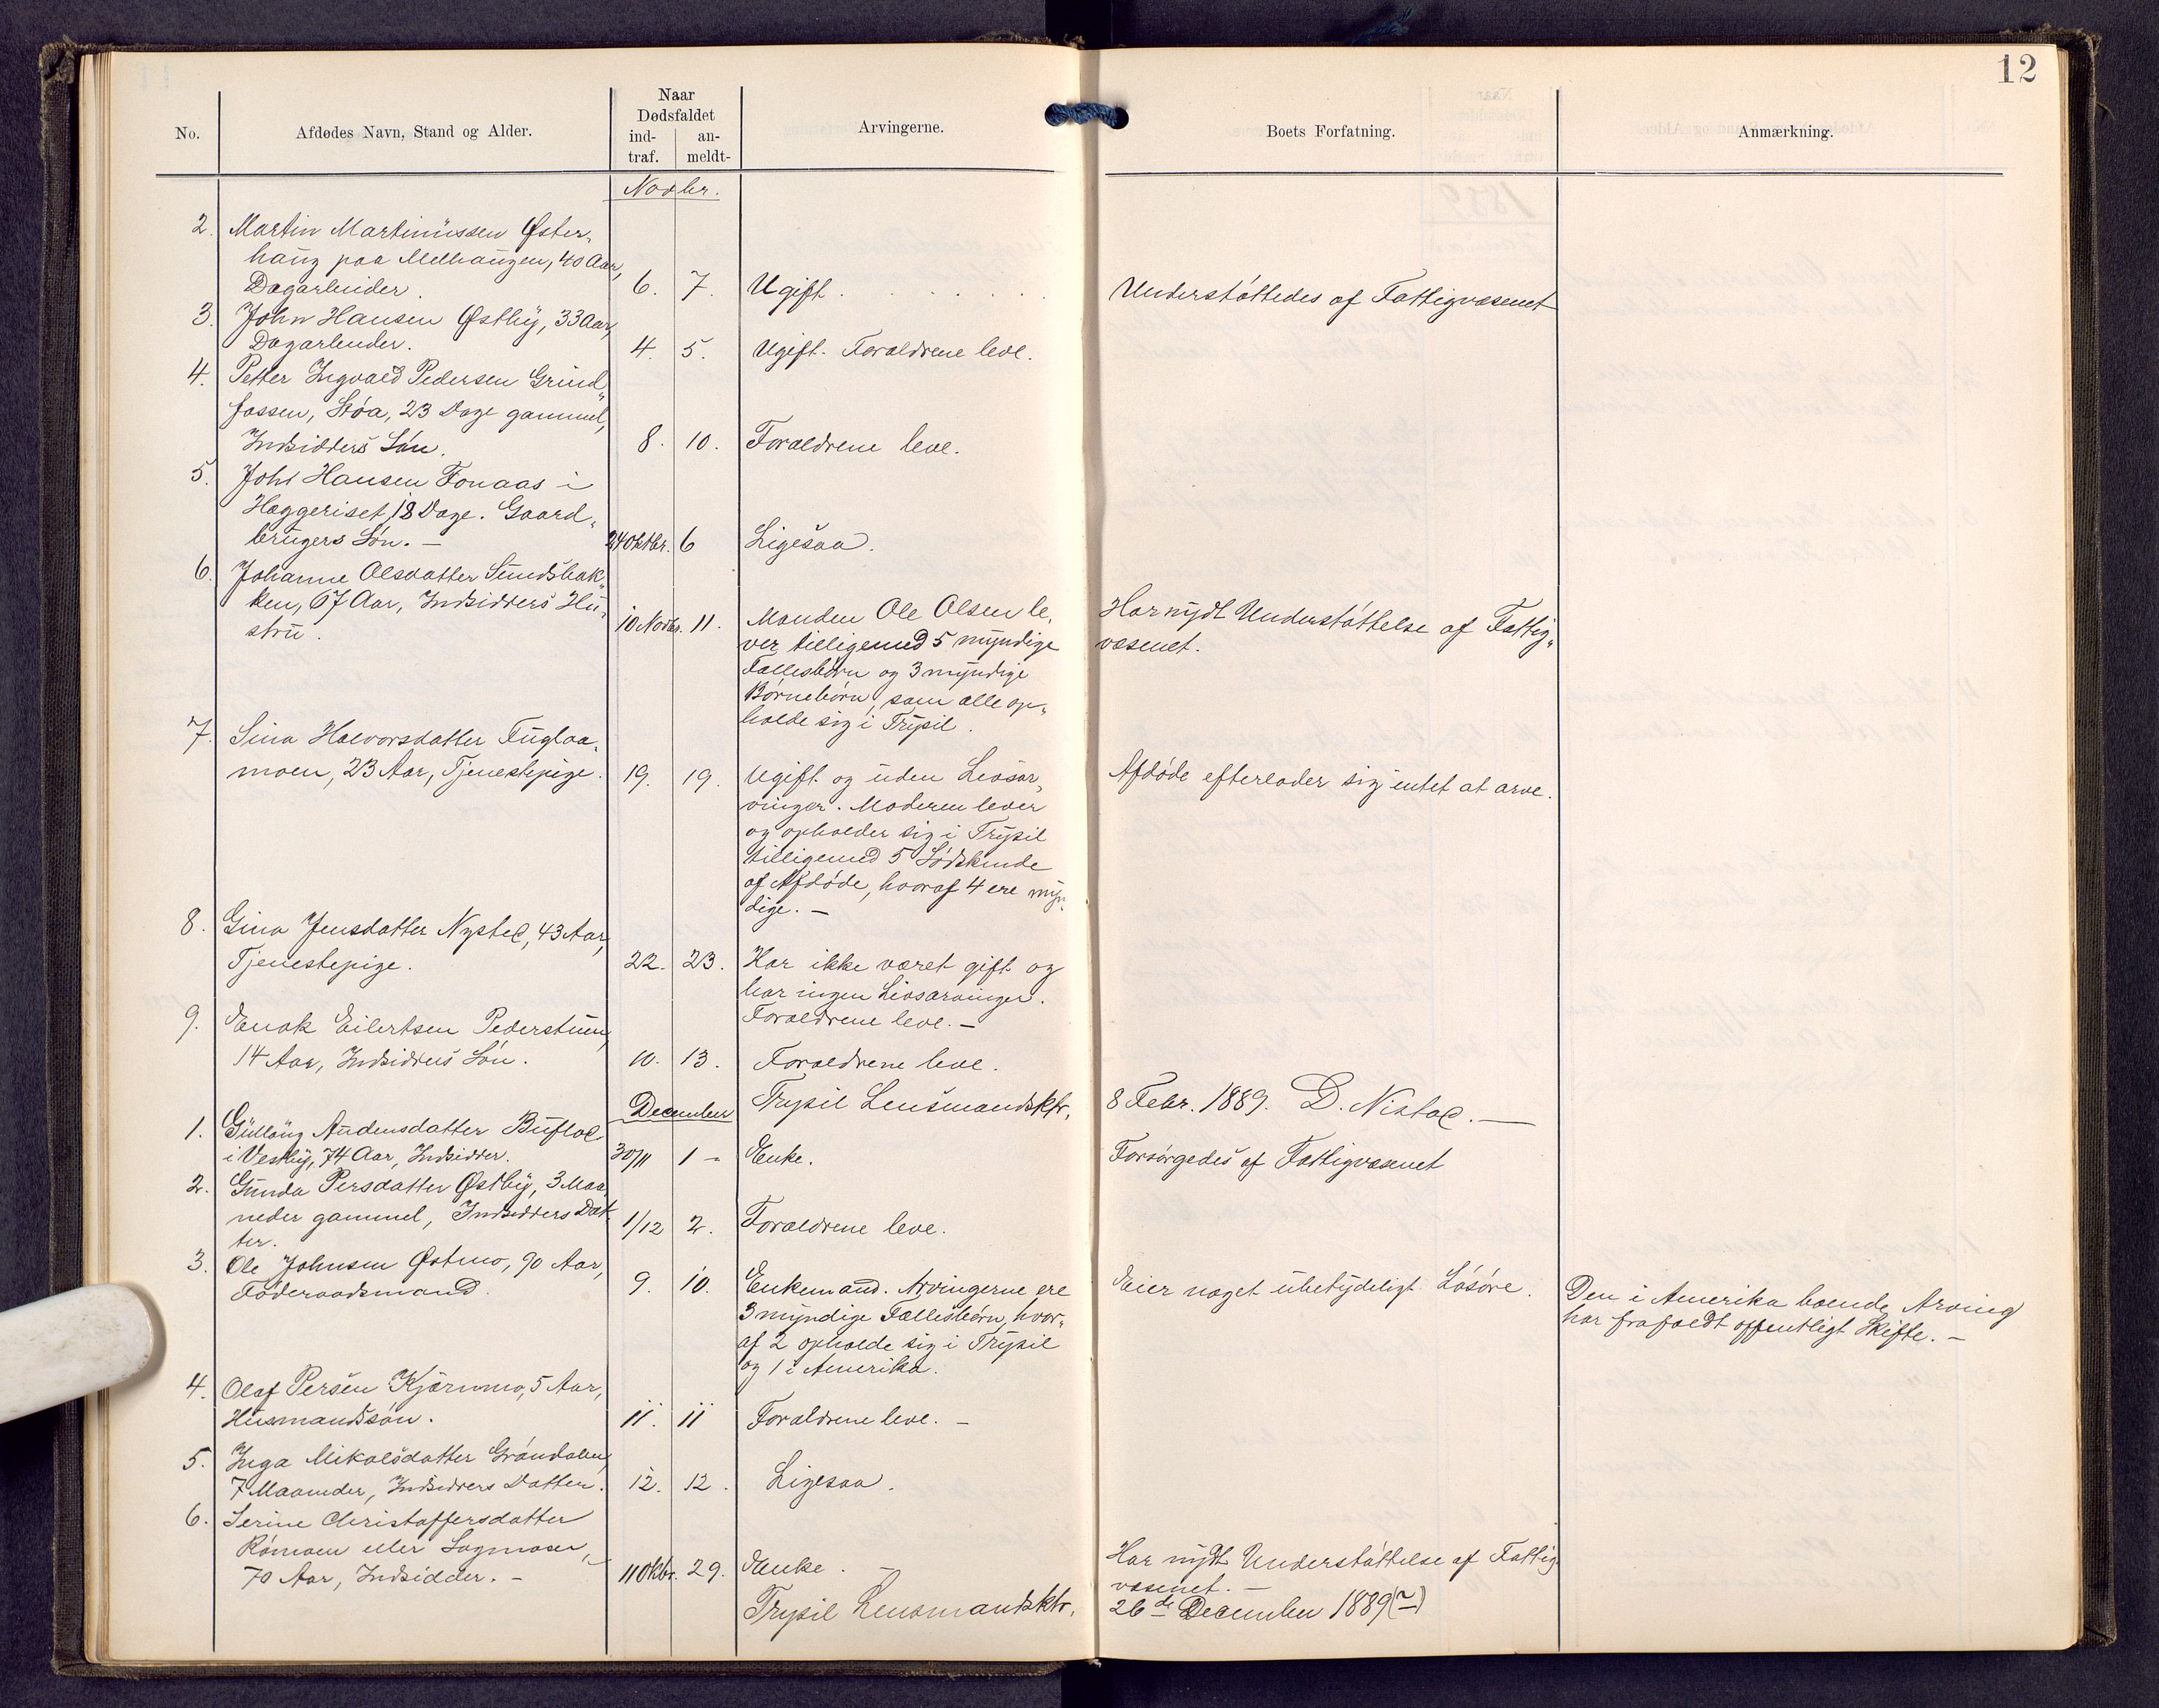 12
No.
Afdødes Navn, Stand og Alder.
Naar
Dødsfaldet
ind-
traf.
an-
meldt-
Arvingerne.
Boets Forfatning.
Anmærkning.
Novbr.
2. Martin Martinussen Øster-
haug paa Melhaugen, 40 Aar,
Dagarbeider. 6. 7. Ugift. Understøttedes af Fattigvæsenet
3. John Hansen Østby, 33 Aar,
Dagarbeider. 4. 5. Ugift. Forældrene leve.
4. Petter Ingvald Pedersen Grind-
fossen, Støa, 23 Dage gammel,
Indsidders Søn. 8. 10. Forældrene leve.
5. Johs Hansen Fonaas i
Haggeriset, 18 Dage. Gaard-
brugers Søn. – 24 Oktbr. 6 Ligesaa.
6. Johanne Olsdatter Sundsbak-
ken, 67 Aar, Indsidders Hu-
stru. 10 Novbr. 11. Manden Ole Olsen le-
ver tilligemed 5 myndige
Fællesbørn og 3 myndige
Børnebørn, som alle op-
holde sig i Trysil.
Har nydt Understøttelse af Fattig-
væsenet.
7. Sina Halvorsdatter Fugloa-
moen, 23 Aar, Tjenestepige. 19. 19. Ugift og uden Livsar-
vinger. Moderen lever
og opholder sig i Trysil
tilligemed 5 Sødskende
af Afdøde, hvoraf 4 ere myn-
dige. –
Afdøde efterlader sig intet at arve.
8. Gina Jensdatter Nysted, 43 Aar,
Tjenestepige. 22. 23. Har ikke været gift og
har ingen Livsarvinger.
Forældrene leve. –
9. Enok Eilertsen Pederstuen,
14 Aar, Indsidders Søn. 10. 13. Forældrene leve.
Trysil Lensmandsktr. 8 Febr. 1889. D. Nistad. –
December
1. Gullaug Audensdatter Bufload
i Vestby, 74 Aar, Indsidder. 30/11 1 – Enke. Forsørgedes af Fattigvæsenet
2. Gunda Persdatter Østby, 3 Maa-
neder gammel, Indsidders Dat-
ter. 1/12 2. Forældrene leve.
3. Ole Johnsen Østmo, 90 Aar,
Føderaadsmand. 9. 10. Enkemand. Arvingerne ere
3 myndige Fællesbørn, hvor-
af 2 opholde sig i Trysil
og 1 i Amerika.
Eier noget ubetydeligt Løsøre.
Den i Amerika boende Arving
har frafaldt offentligt Skifte. –
4. Olaf Persen Kjærnmo, 5 Aar,
Husmandssøn. 11. 11 Forældrene leve. –
5. Inga Mikalsdatter Grøndalen,
7 Maaneder, Indsidders Datter. 12. 12. Ligesaa.
6. Serine Christoffersdatter
Rømoen eller Sagmoen,
70 Aar, Indsidder. – 11 Oktbr. 29. Enke. –
Har nydt Understøttelse af Fattig-
væsenet. –
Trysil Lensmandsktr. 26de December 1889 (~)